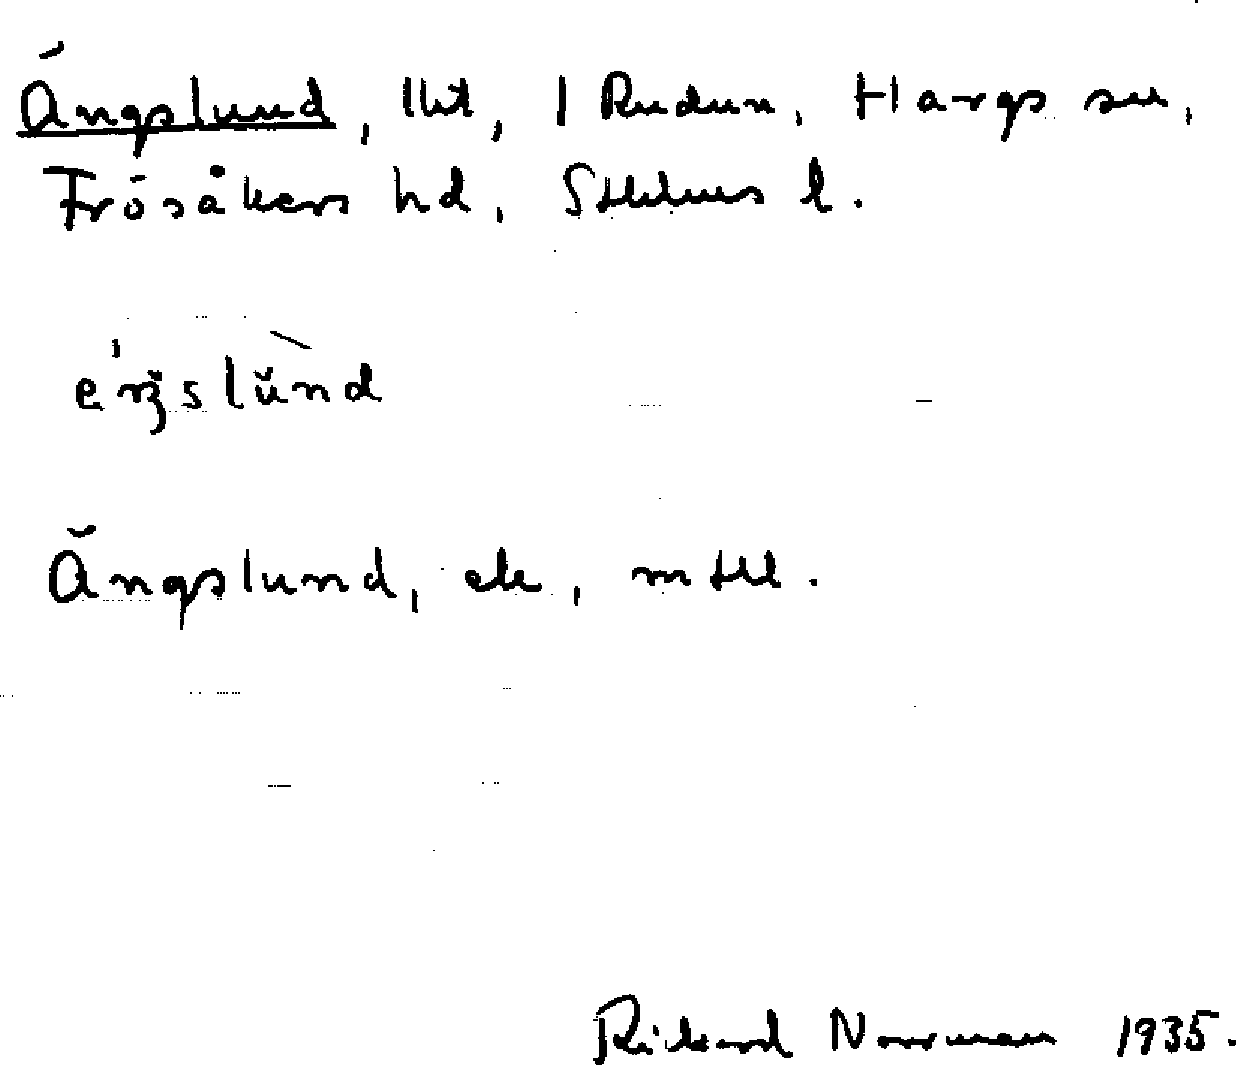 Ängslund, lht, 1 Rudun, Hargs sn,
Frösåkers hd, Sthlms l.
Ängslund, ek, mtll.
Rickard Norrman 1935.